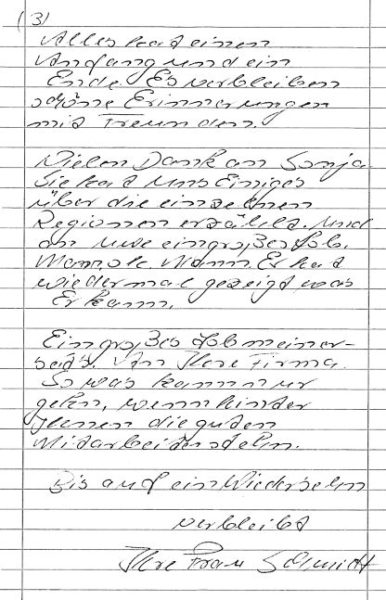 (3)
Alles hat einen
Anfang und ein
Ende. Es verbleiben
schöne Erinnerungen
mit Freunden.
Vielen Dank an Sonja
Sie hat uns Einiges
über die einzelnen
Regionen erzählt. Und
an Uwe ein großes Lob.
Mannole Mann. Er hat
wiedermal gezeigt was
Er kann.
Ein großes Lob meiner-
seits. An Ihre Firma.
So was kann nur
gehn, wenn hinter
Ihnen die guten
Mitarbeiter stehn.
Bis auf ein Wiedersehn
verbleibt
Ihre Frau Schmidt